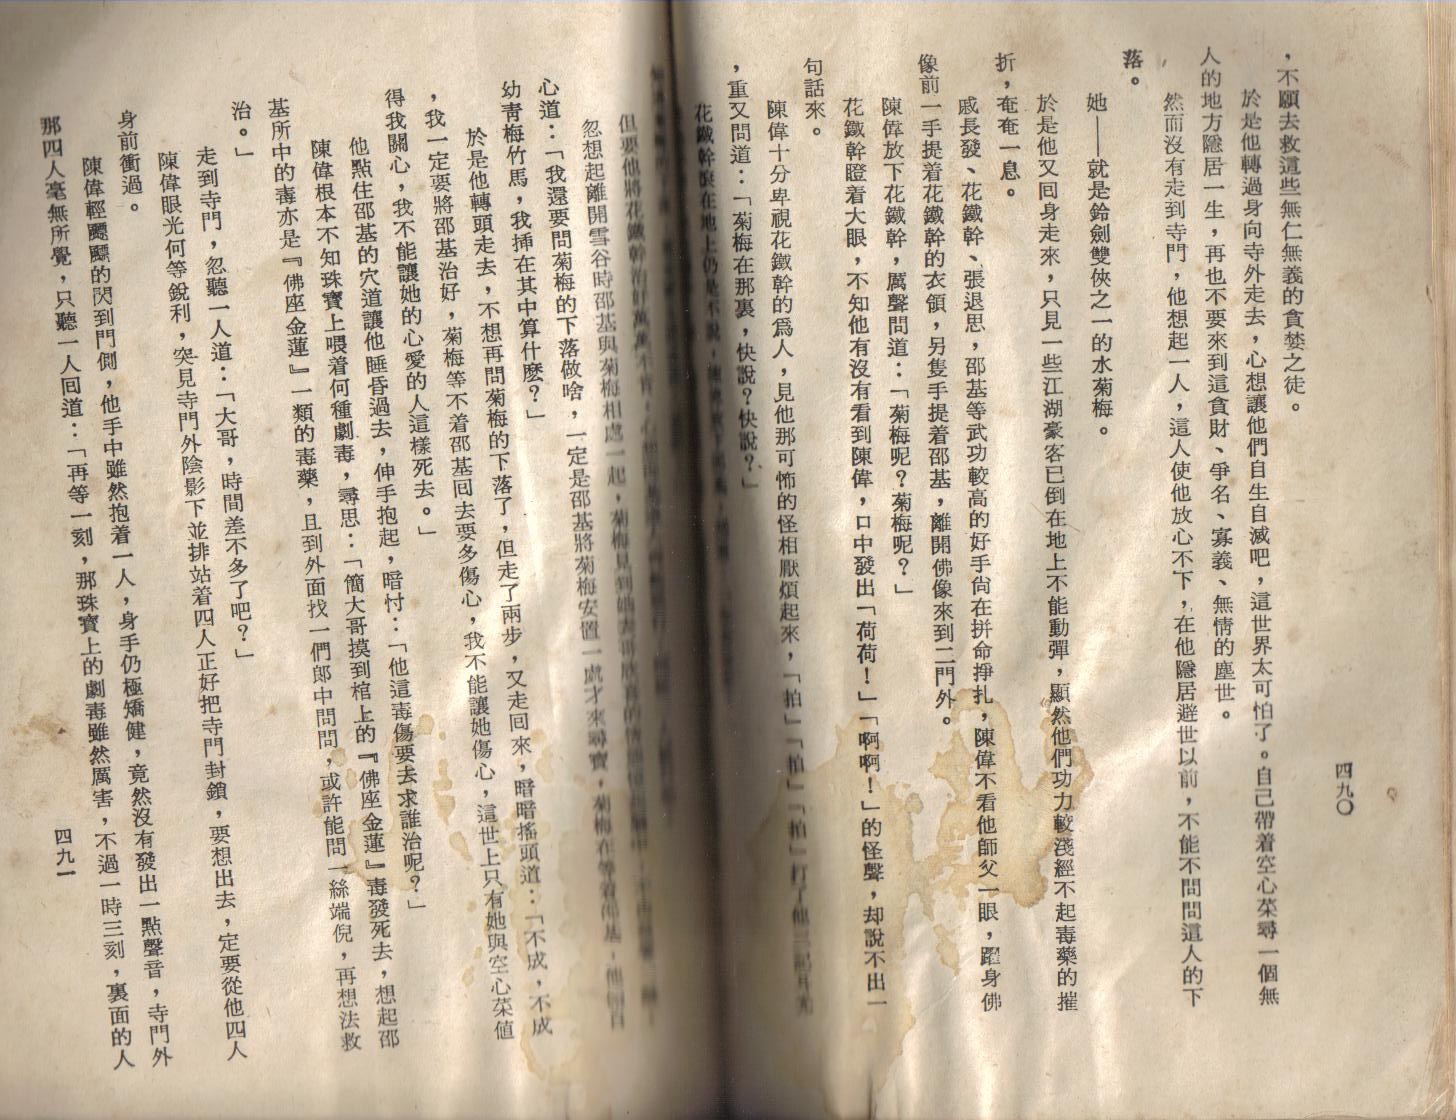 四九〇
，不願去救這些無仁無義的貪婪之徒。
於是他轉過身向寺外走去，心想讓他們自生自滅吧，這世界太可怕了。自己帶着空心菜尋一個無
人的地方隱居一生，再也不要來到這貪財、爭名、寡義、無情的塵世。
然而沒有走到寺門，他想起一人，這人使他放心不下，在他隱居避世以前，不能不問問這人的下
落。
她——就是鈴劍雙俠之一的水菊梅。
於是他又回身走來，只見一些江湖豪客已倒在地上不能動彈，顯然他們功力較淺經不起毒藥的摧
折，奄奄一息。
戚長發、花鐵幹、張退思，邵基等武功較高的好手尙在拼命掙扎，陳偉不看他師父一眼，躍身佛
像前一手提着花鐵幹的衣領，另隻手提着邵基，離開佛像來到二門外。
陳偉放下花鐵幹，厲聲問道：「菊梅呢？菊梅呢？」
花鐵幹瞪着大眼，不知他有沒有看到陳偉，口中發出「荷荷！」「啊啊！」的怪聲，却說不出一
句話來。
陳偉十分卑視花鐵幹的爲人，見他那可怖的怪相厭煩起來，「拍」「拍」「拍」打了他三記耳光
，重又問道：「菊梅在那裏，快說？快說？」
花鐵幹躺在地上仍是不說，
但要他將花鐵幹治好萬萬不肯，
忽想起離開雪谷時邵基與菊梅相處一起，菊梅見到她表哥欣喜的
心道：「我還要問菊梅的下落做啥，一定是邵基將菊梅安置一處才來尋寶，菊梅在等着邵基，他倆自
幼靑梅竹馬，我揷在其中算什麼？」
於是他轉頭走去，不想再問菊梅的下落了，但走了兩步，又走回來，暗暗搖頭道：「不成，不成
，我一定要將邵基治好，菊梅等不着邵基回去要多傷心，我不能讓她傷心，這世上只有她與空心菜值
得我關心，我不能讓她的心愛的人這樣死去。」
他點住邵基的穴道讓他睡昏過去，伸手抱起，暗忖：「他這毒傷要去求誰治呢？」
陳偉根本不知珠寶上喂着何種劇毒，尋思：「簡大哥摸到棺上的『佛座金蓮』毒發死去，想起邵
基所中的毒亦是『佛座金蓮』一類的毒藥，且到外面找一們郎中問問，或許能問一絲端倪，再想法救
治。」
走到寺門，忽聽一人道：「大哥，時間差不多了吧？」
陳偉眼光何等銳利，突見寺門外陰影下並排站着四人正好把寺門封鎖，要想出去，定要從他四人
身前衝過。
陳偉輕飄飄的閃到門側，他手中雖然抱着一人，身手仍極矯健，竟然沒有發出一點聲音，寺門外
那四人毫無所覺，只聽一人回道：「再等一刻，那珠寶上的劇毒雖然厲害，不過一時三刻，裏面的人
四九一